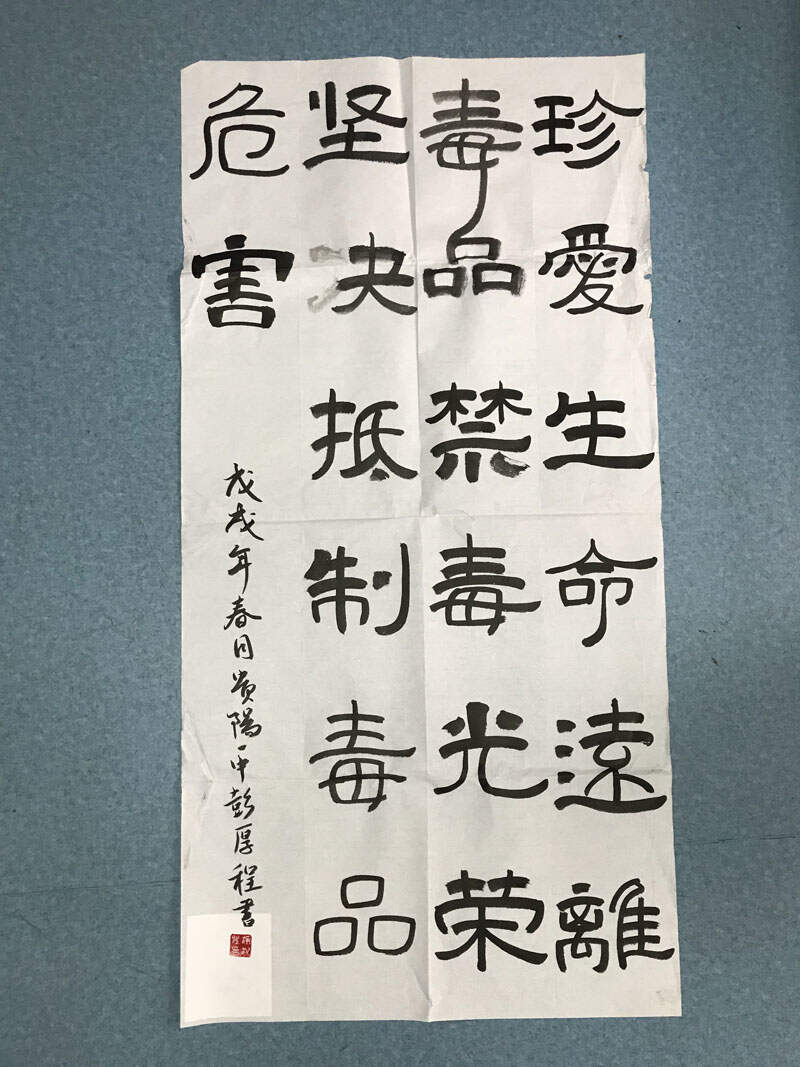 珍愛生命遠離
毒品禁毒光荣
坚决抵制毒品
危害
戊戌年春月贵陽一中彭厚程書